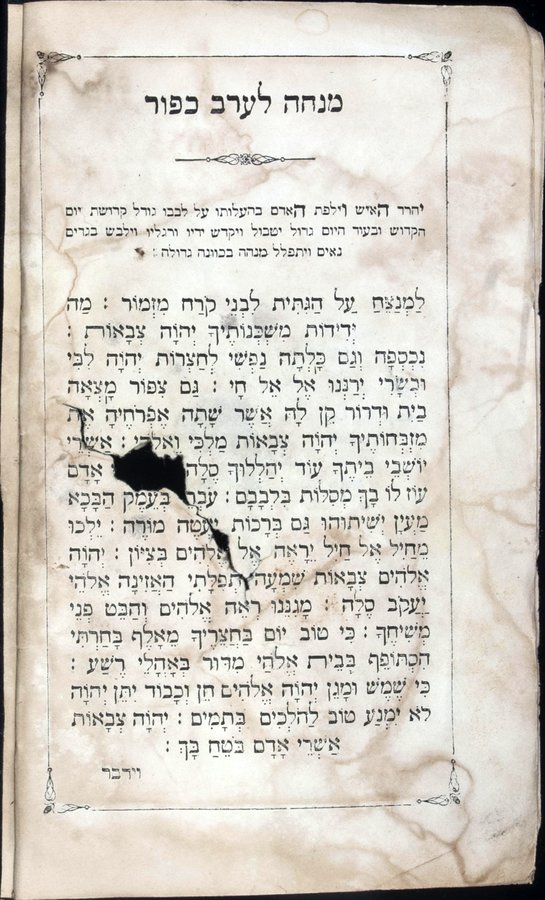 מנחה לערב כפור
יהרר האיש וילפת האדם בהעלותו על לבבו גודל קדושת יום
הקדוש ובעוד היום גדול יטבול ויקדש ידיו ורגליו וילבש בגדים
נאים ויתפלל מנחה בכוונה גדולה :
לַמְנַצֵּחַ עַל הַגִּתִּית לִבְנֵי קֹרַח מִזְמוֹר : מַה
יְדִידוֹת מִשְׁכְּנוֹתֶיךָ יְהֹוָה צְבָאוֹת :
נִכְסְפָה וְגַם כָּלְתָה נַפְשִׁי לְחַצְרוֹת יְהֹוָה לִבִּי
וּבְשָׂרִי יְרַנְּנוּ אֶל אֵל חָי : גַּם צִפּוֹר מָצְאָה
בַיִת וּדְרוֹר קֵן לָהּ אֲשֶׁר שָׁתָה אֶפְרֹחֶיהָ אֶת
מִזְבְּחוֹתֶיךָ יְהֹוָה צְבָאוֹת מַלְכִּי וֵאלֹהָי : אַשְׁרֵי
יוֹשְׁבֵי בֵיתֶךָ עוֹד יְהַלְלוּךָ סֶּלָה אָדָם
עוֹז לוֹ בָךְ מְסִלּוֹת בִּלְבָבָם : עֹבְרֵי בְּעֵמֶק הַבָּכָא
מַעְיָן יְשִׁיתוּהוּ גַּם בְּרָכוֹת יַעְטֶה מוֹרֶה : יֵלְכוּ
מֵחַיִל אֶל חָיִל יֵרָאֶה אֶל אֱלֹהִים בְּצִיּוֹן : יְהֹוָה
אֱלֹהִים צְבָאוֹת שִׁמְעָה תְפִלָּתִי הַאֲזִינָה אֱלֹהֵי
יַעֲקֹב סֶלָה : מָגִנֵּנוּ רְאֵה אֱלֹהִים וְהַבֵּט פְּנֵי
מְשִׁיחֶךָ : כִּי טוֹב יוֹם בַּחֲצֵרֶיךָ מֵאָלֶף בָּחַרְתִּי
הִסְתּוֹפֵף בְּבֵית אֱלֹהַי מִדּוּר בְּאָהֳלֵי רֶשַׁע :
כִּי שֶׁמֶשׁ וּמָגֵן יְהֹוָה אֱלֹהִים חֵן וְכָבוֹד יִתֵּן יְהֹוָה
לֹא יִמְנַע טוֹב לַהֹלְכִים בְּתָמִים : יְהֹוָה צְבָאוֹת
אַשְׁרֵי אָדָם בֹּטֵחַ בָּךְ :
וידבר